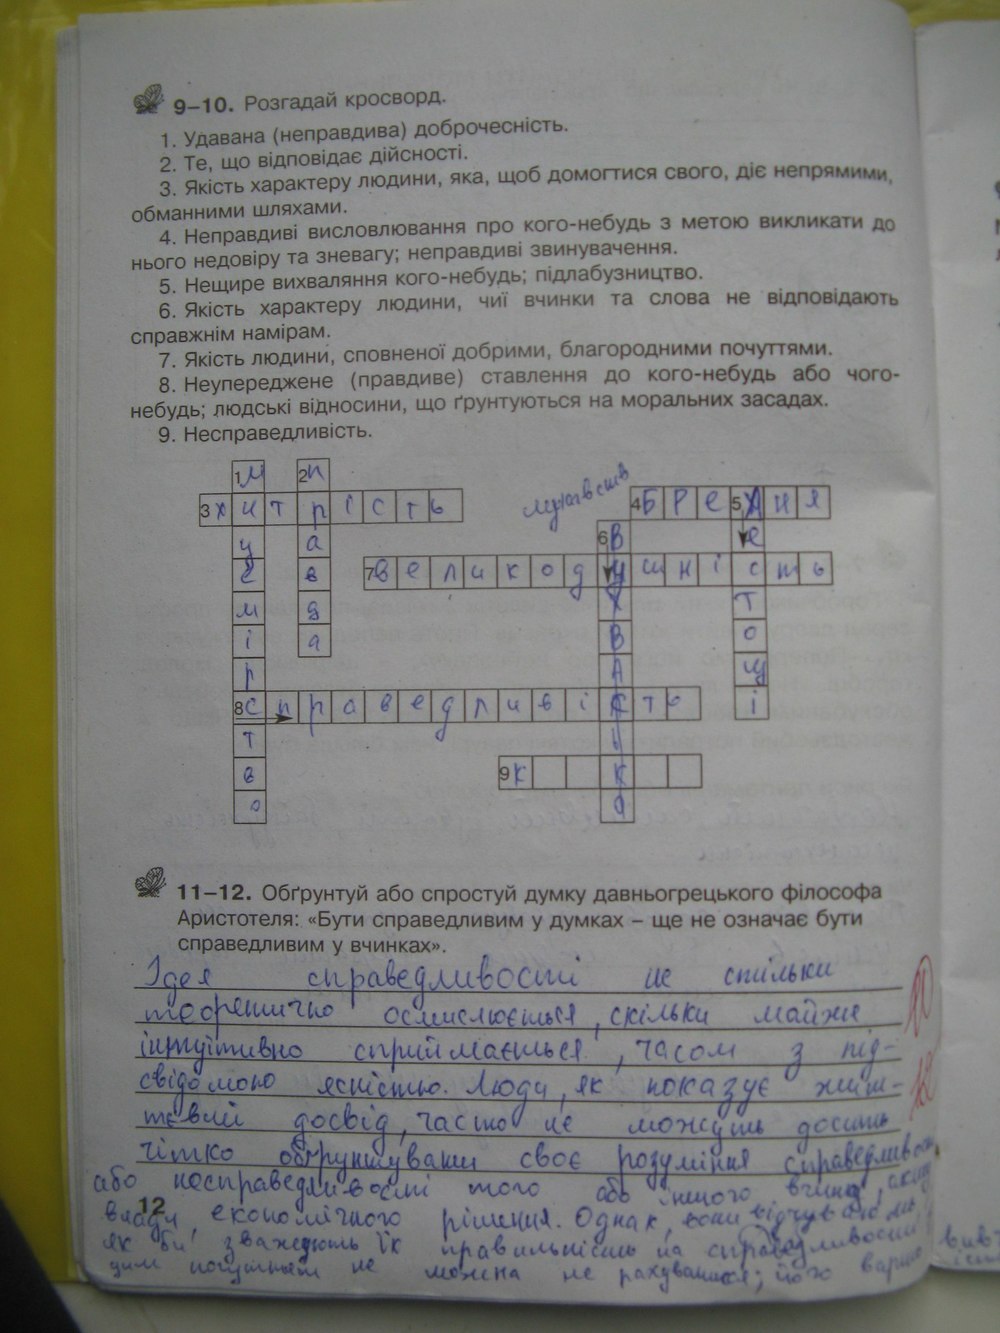 9–10. Розгадай кросворд.
1. Удавана (неправдива) доброчесність.
2. Те, що відповідає дійсності.
3. Якість характеру людини, яка, щоб домогтися свого, діє непрямими,
обманними шляхами.
4. Неправдиві висловлювання про кого-небудь з метою викликати до
нього недовіру та зневагу; неправдиві звинувачення.
5. Нещире вихваляння кого-небудь; підлабузництво.
6. Якість характеру людини, чиї вчинки та слова не відповідають
справжнім намірам.
7. Якість людини, сповненої добрими, благородними почуттями.
8. Неупереджене (правдиве) ставлення до кого-небудь або чого-
небудь; людські відносини, що ґрунтуються на моральних засадах.
9. Несправедливість.
3 хитрість
4 БРЕХНЯ
7 великодушність
8 справедливість
9 к
2 правда
11–12. Обґрунтуй або спростуй думку давньогрецького філософа
Аристотеля: «Бути справедливим у думках – ще не означає бути
справедливим у вчинках».
Ідея справедливості не стільки
теоретично осмислюється, скільки майже
інтуїтивно сприймається, часом з під-
свідомою ясністю. Люди, як показує жит-
тєвий досвід, часто не можуть досить
чітко обґрунтувати своє розуміння
або несправедливості того або іншого
влади, економічного рішення. Однак, вони відчувають
як би зважують їх правильність на
цим почуттям не можна не рахуватися; його
12
10
12